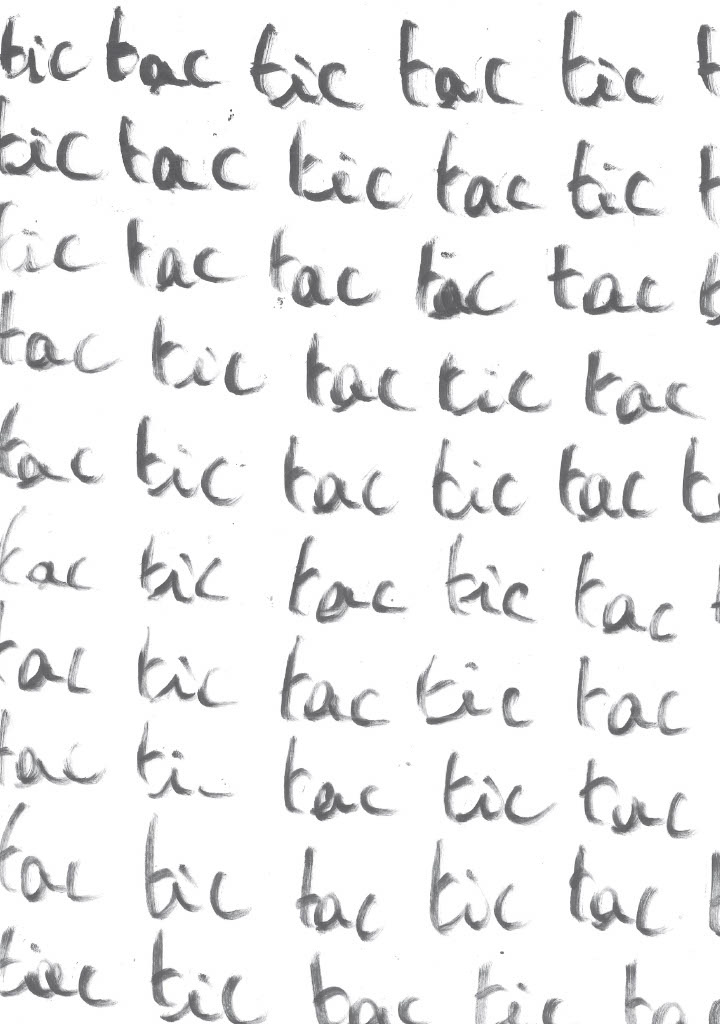 tic tac tic tac tic t
tic tac tic tac tic t
tic tac tac tac tac t
tac tic tac tic tac
tac tic tac tic tac t
tac tic tac tic tac
tac tic tac tic tac
tac ti tac tic tac
tac tic tac tic tac t
tic tac tic ta